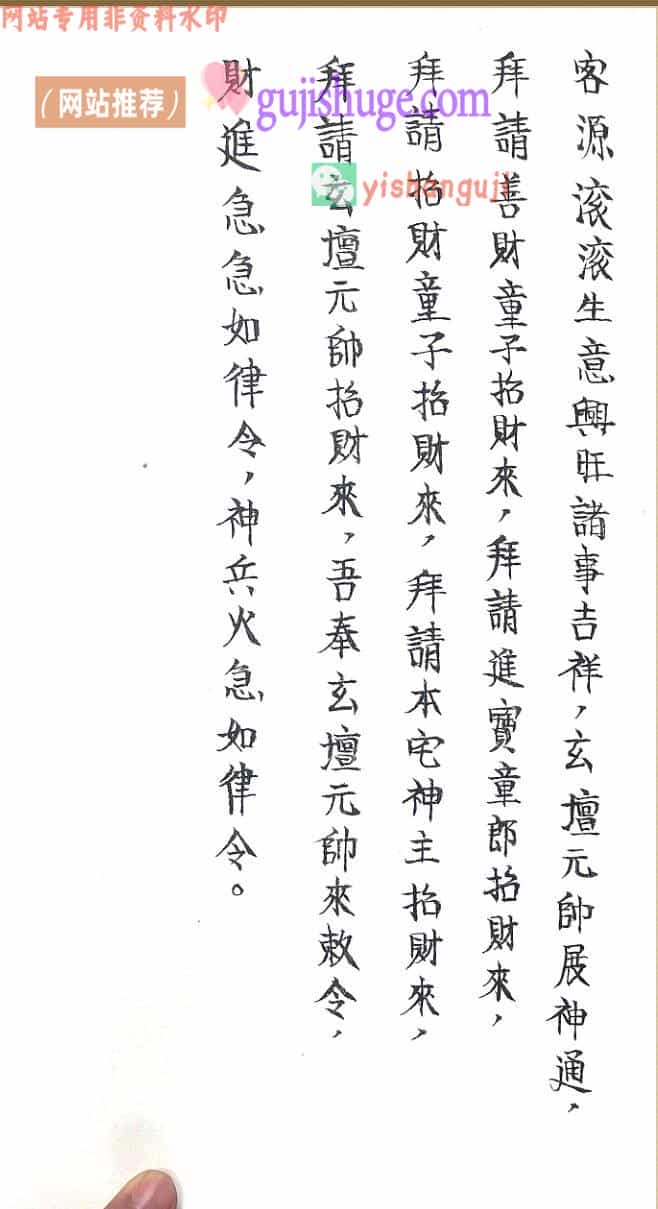 网站专用非资料水印
（网站推荐）
gujishuge.com
yishanguji
客源滚滚生意興旺諸事吉祥，玄壇元帥展神通，
拜請善財童子招財來，拜請進寶童郎招財來，
拜請招財童子招財來，拜請本宅神主招財來，
拜請玄壇元帥招財來，吾奉玄壇元帥來敕令，
財進急急如律令，神兵火急如律令。